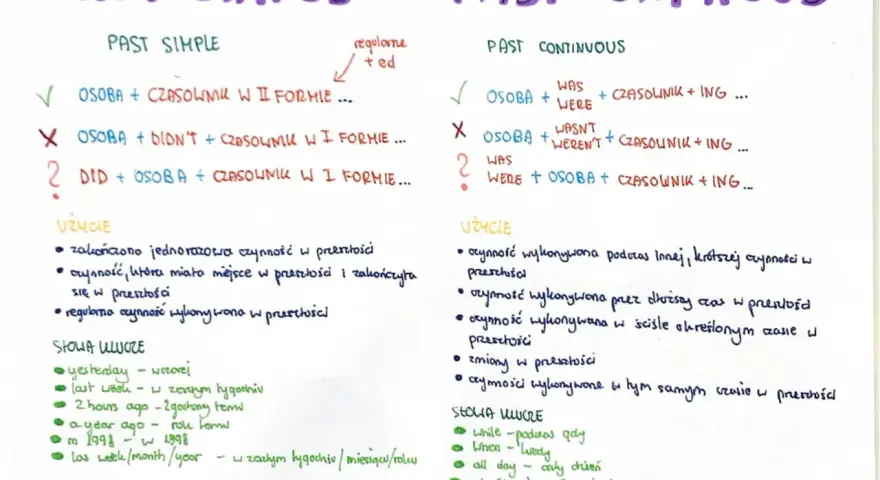 PAST SIMPLE
regularne
+ ed
✓ OSOBA + CZASOWNIK W II FORMIE ...
X OSOBA + DIDN'T + CZASOWNIK W I FORMIE ...
? DID + OSOBA + CZASOWNIK W I FORMIE ...
UŻYCIE
• zakończono jednorazowa czynność w przeszłości
• czynność, która miała miejsce w przeszłości i zakończyła
się w przeszłości
• regularna czynność wykonywana w przeszłości
SŁOWA KLUCZE
• yesterday - wczoraj
• last week - w zeszłym tygodniu
• 2 hours ago - 2 godziny temu
• a year ago - rok temu
• in 1998 - w 1998
• las week/month/year - w zeszłym tygodniu/miesiącu/roku
PAST CONTINUOUS
✓ OSOBA + WAS
WERE + CZASOWNIK + ING ...
X OSOBA + WASN'T
WEREN'T + CZASOWNIK + ING ...
? WAS
WERE + OSOBA + CZASOWNIK + ING ...
UŻYCIE
• czynność wykonywana podczas innej, krótszej czynności w
przeszłości
• czynność wykonywana przez dłuższy czas w przeszłości
• czynność wykonywana w ściśle określonym czasie w
przeszłości
• zmiany w przeszłości
• czynności wykonywane w tym samym czasie w przeszłości
SŁOWA KLUCZE
• while - podczas gdy
• when - kiedy
• all day - cały dzień